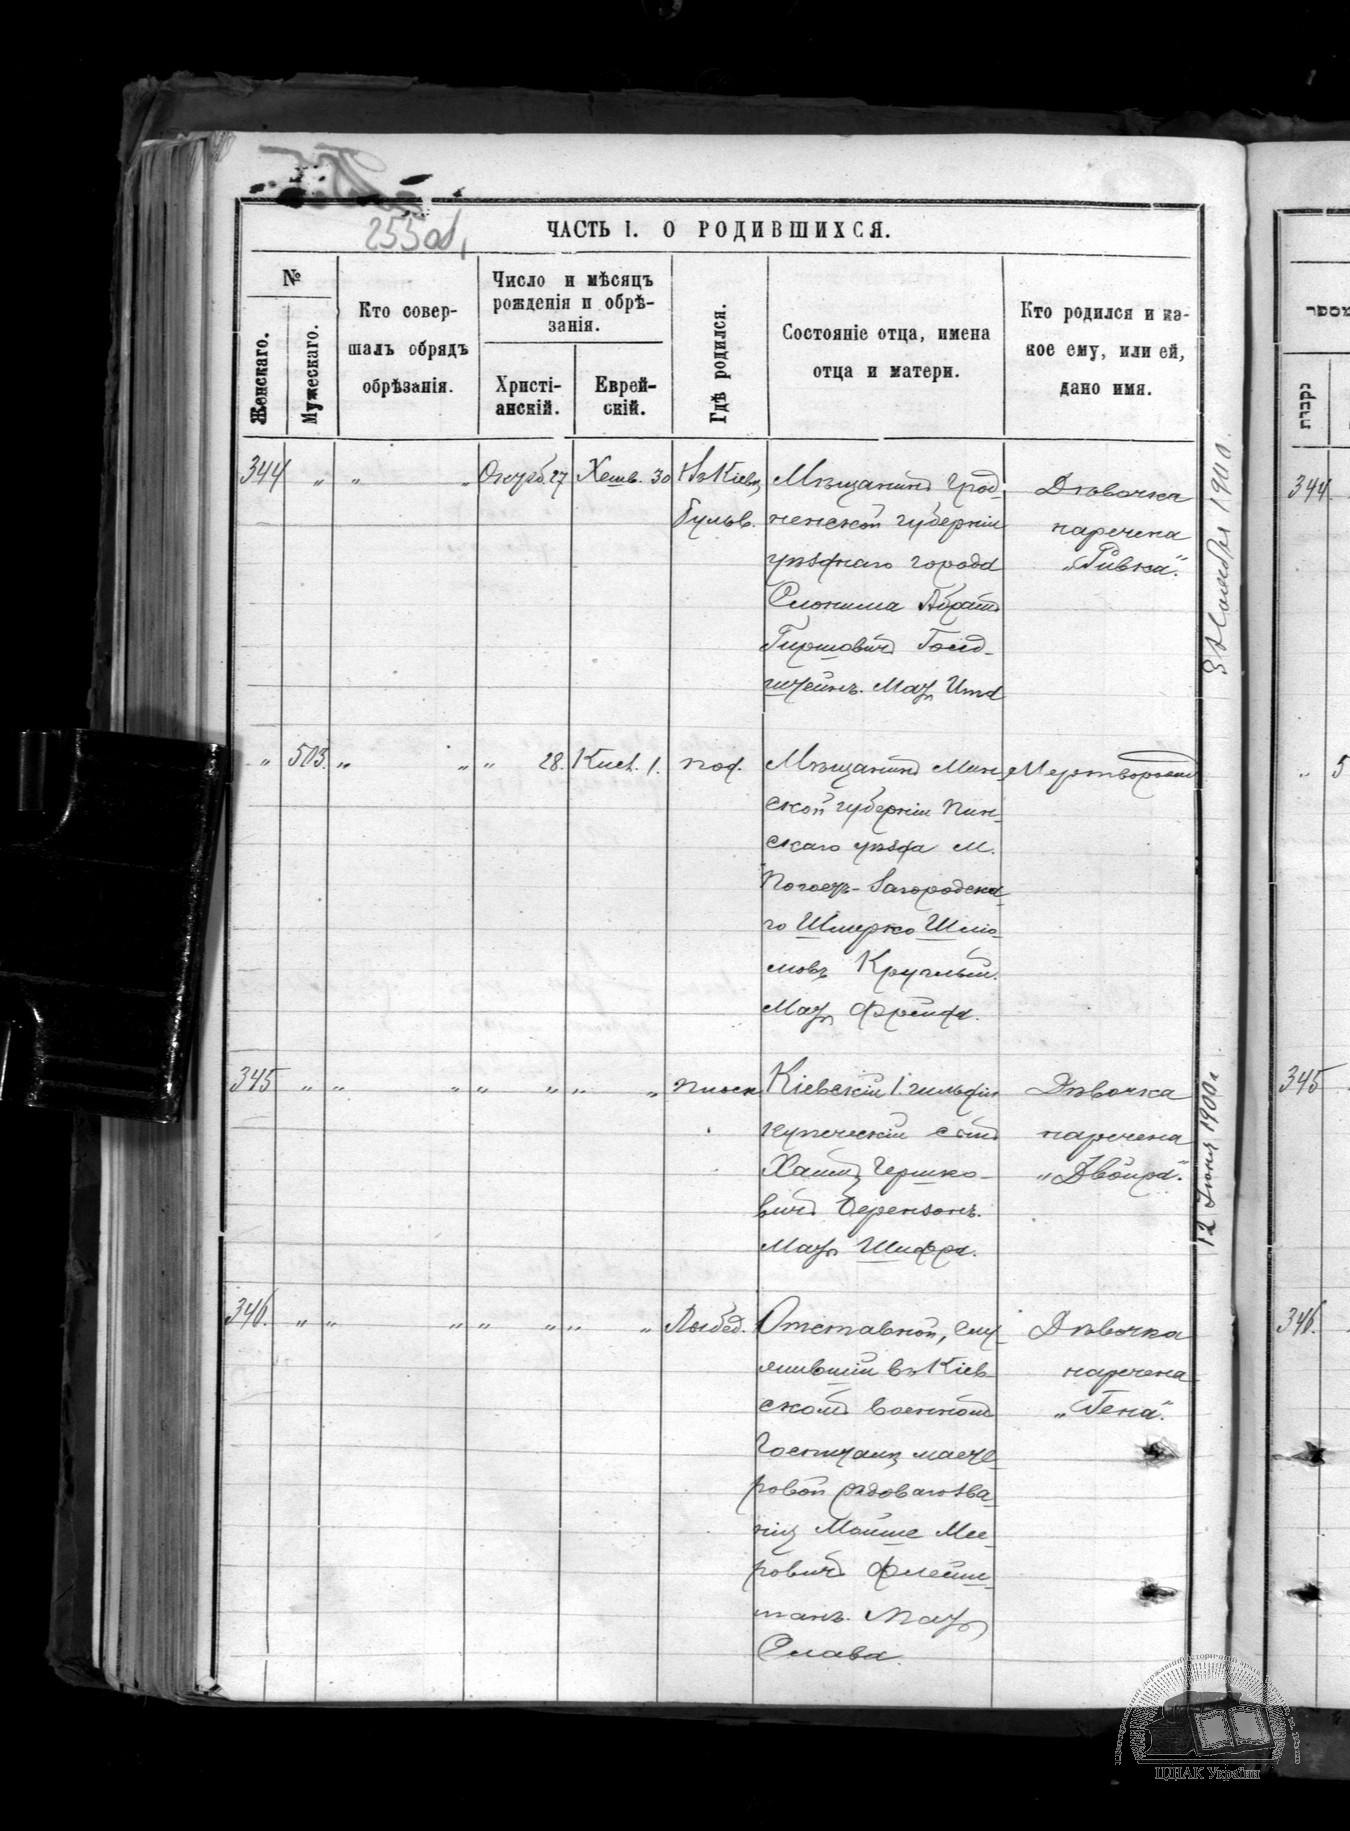 255 об.
ЧАСТЬ I. О РОДИВШИХСЯ.
№
Женскаго.
Мужескаго.
Кто совер-
шалъ обрядъ
обрѣзанія.
Число и мѣсяцъ
рожденія и обрѣ-
занія.
Христі-
анскій.
Еврей-
скій.
Гдѣ родился.
Состояніе отца, имена
отца и матери.
Кто родился и ка-
кое ему, или ей,
дано имя.
344 " " " Октяб. 27 Хешв. 30 Въ Кіевѣ
Бульв.
Мѣщанинъ Грод-
ненской губерніи
уѣзднаго города
Слонима Абрамъ
Гиршовичъ Голд-
штейнъ. Мать Ита
Дѣвочка
наречена
"Ривка".
3 Ноября 1900.
" 503. " " " 28. Кисл. 1. под.
Мѣщанинъ Мин-
ской губерніи Пин-
скаго уѣзда М.
Погостъ-Загородска-
го Шмерко Шлио-
мовъ Круглый.
Мать Фрейда.
Мертворожден
345 " " " " " " " Плоск.
Кіевскій 1. гильдіи
купеческій сынъ
Хаимъ Гершко-
вичъ Берензонъ.
Мать Шифра.
Дѣвочка
наречена
"Двойра".
12 Іюня 1900 г.
346. " " " " " " " Лыбед.
Отставной, слу-
жившій въ Кіев
скомъ военномъ
Госпиталѣ масте-
ровой рядоваго зва-
нія Мойше Мее-
ровичъ Флейш-
манъ. Мать
Слава.
Дѣвочка
наречена
"Гена".
מספר
נקבות
344
" 5
345
346
ЦДІАК України